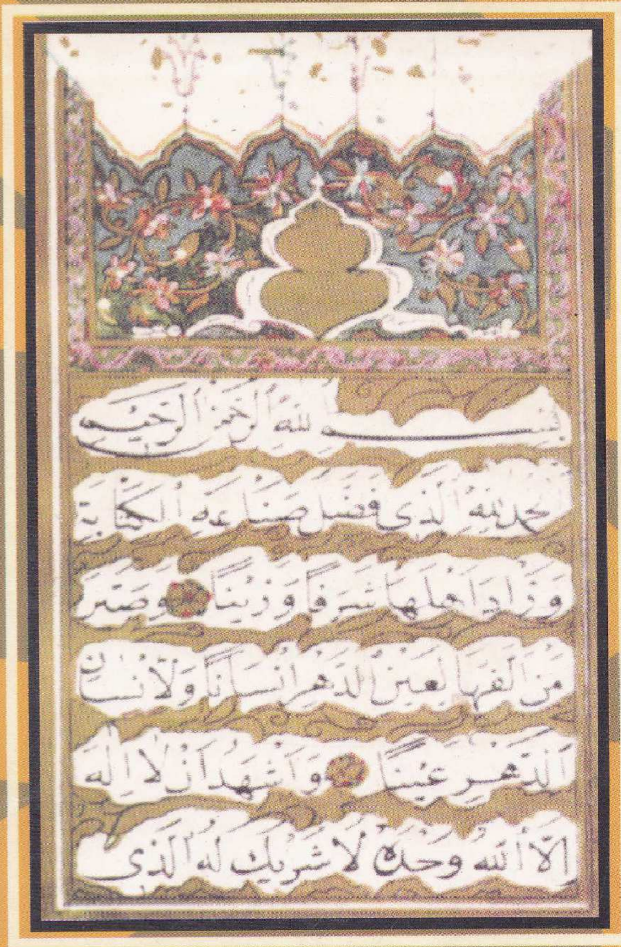 بسم الله الرحمن الرحيم
الحمد لله الذي فضل صناعة الكتابة
وزاد اهلها شرفا وزينا وصير
من الفها لعين الدهر انسانا ولانسان
الدهر عينا واشهد ان لا اله
الا الله وحده لا شريك له الذي